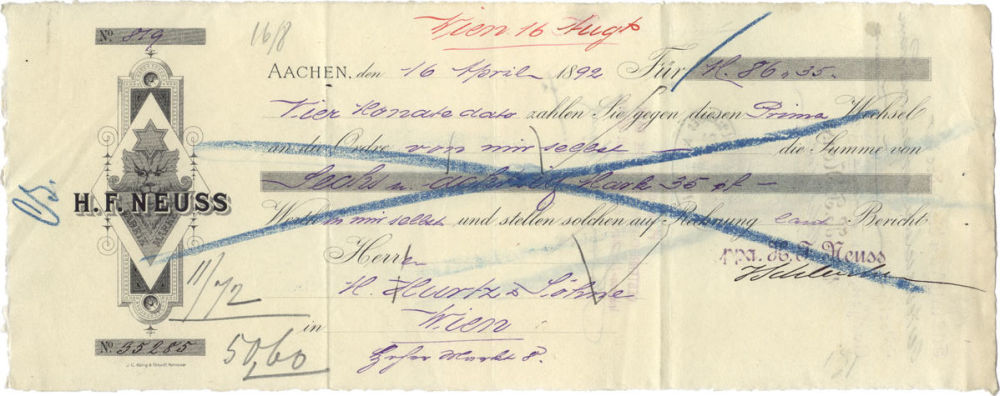 Wien 16 Augt
No 819
16/8
AACHEN, den 16 April 1892 Für M. 86,35.
Vier Monate dato zahlen Sie gegen diesen Prima Wechsel
an die Ordre von mir selbst die Summe von
Sechs u. achtzig Mark 35 pf
H. F. NEUSS
Werth in mir selbst und stellen solchen auf Rechnung laut Bericht
Herren
ppa. H. F. Neuss
Söhne
in Wien
Hoher Markt 8.
No 35285
50,60